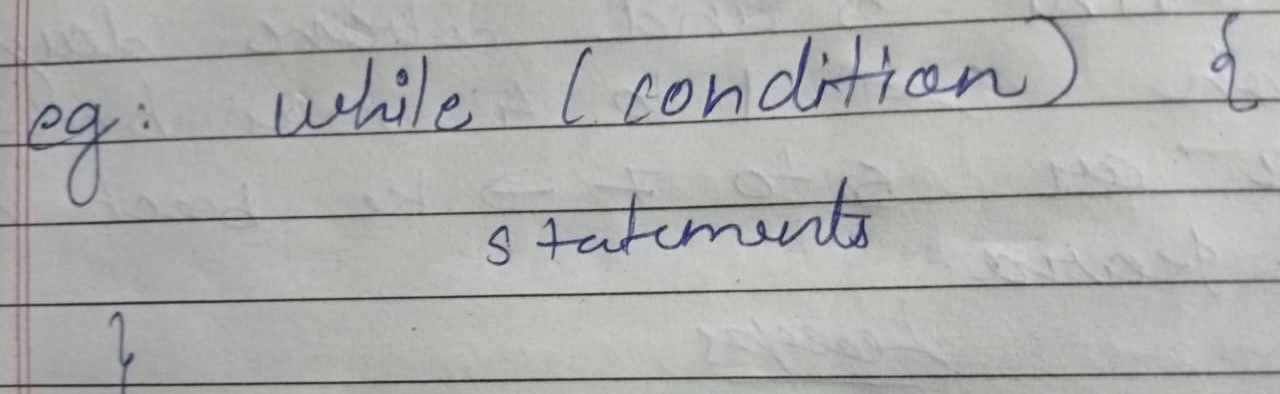 eg: while (condition) {
statements
}